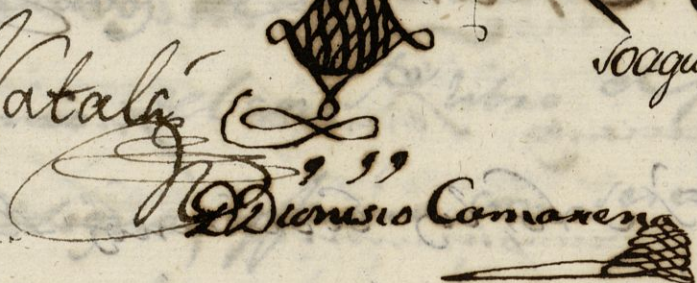 Natalá
Joaqu
D Dionisio Camarena